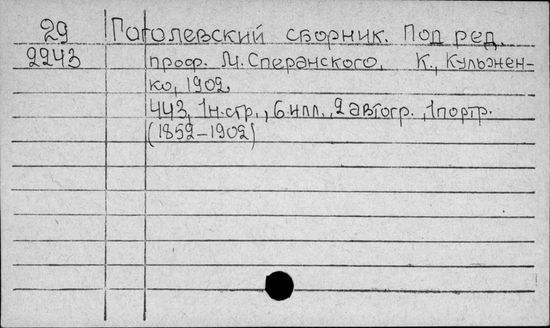 29 Гоголевский сборник. Под ред.
2243 проф. М. Сперанского. К., Кульжен-
ко, 1902.
443, 1 н. стр., 6 илл., 2 автогр., 1 портр.
(1852-1902)